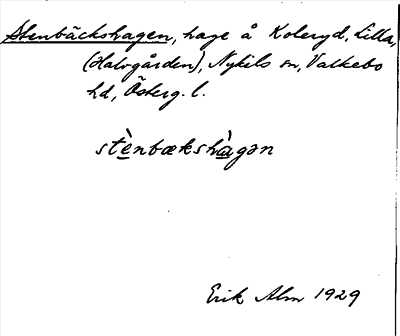 Stenbäckshagen, hage å Koleryd, Lilla,
(Halvgården), Nykils sn, Valkebo
hd, Österg. l.
stè̱nbækshà̱gən
Erik Alm 1929